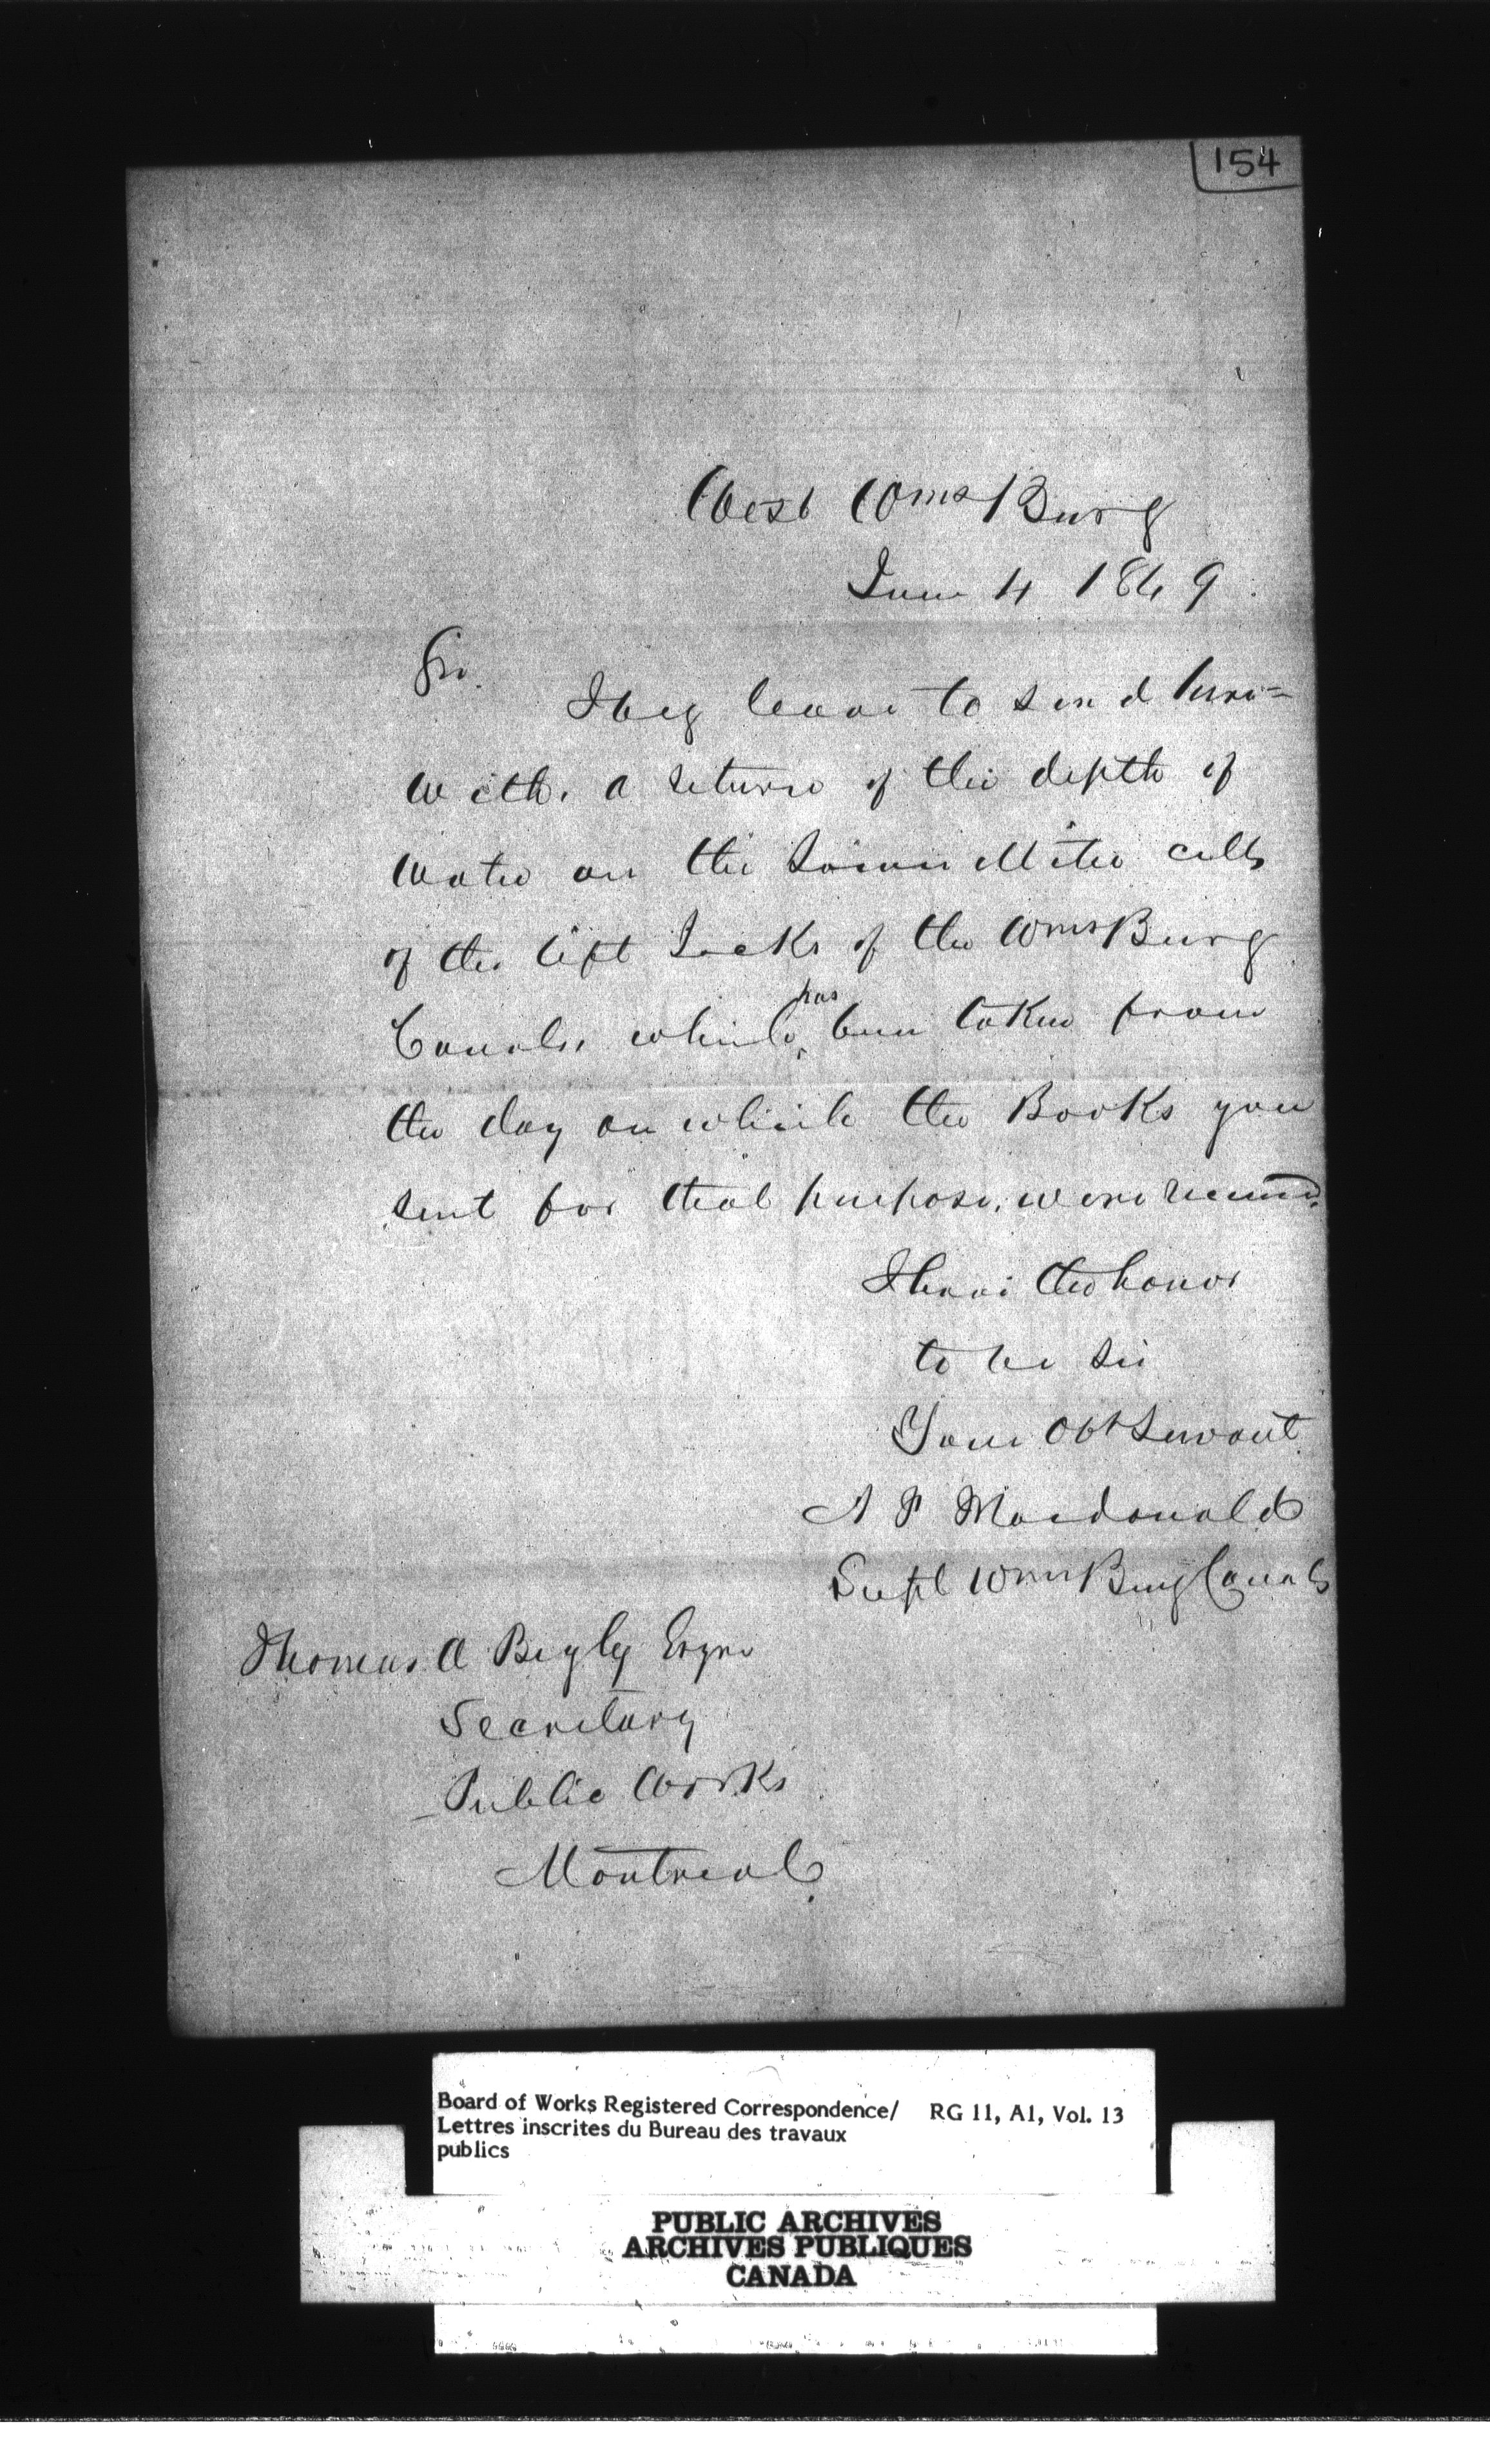 154
West WmsBurg
June 4 1849
Sir.
I beg leave to send here=
with. a return of the depth of
water on the lower Mitre cills
of the lift Locks of the WmsBurg
Canals which has been taken from
the day on which the Books you
sent for that purpose. were received.
I have the honor
to be Sir
Your Obt Servant
A P Macdonald
Supt WmsBurg Canals
Thomas A Begly Esqre
Secretary
Public Works
Montreal
Board of Works Registered Correspondence/ RG 11, A1, Vol. 13
Lettres inscrites du Bureau des travaux
publics
PUBLIC ARCHIVES
ARCHIVES PUBLIQUES
CANADA